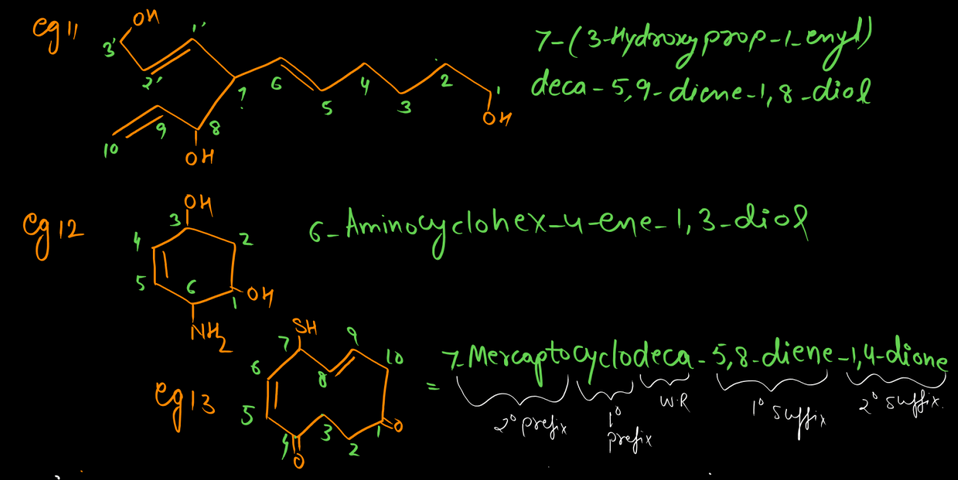 eg 11
OH
3' 1'
2' 6 4 2 1
7 5 3
OH
9 8
10
OH
7-(3-Hydroxyprop-1-enyl)
deca-5,9-diene-1,8-diol
eg 12
OH
3
4 2
5 6 1 OH
NH2
6-Aminocyclohex-4-ene-1,3-diol
eg 13
SH
7 9
6 8 10
5
4 3 2 1 O
O
= 7-Mercaptocyclodeca-5,8-diene-1,4-dione
2° prefix 1° prefix W.R 1° suffix 2° suffix.